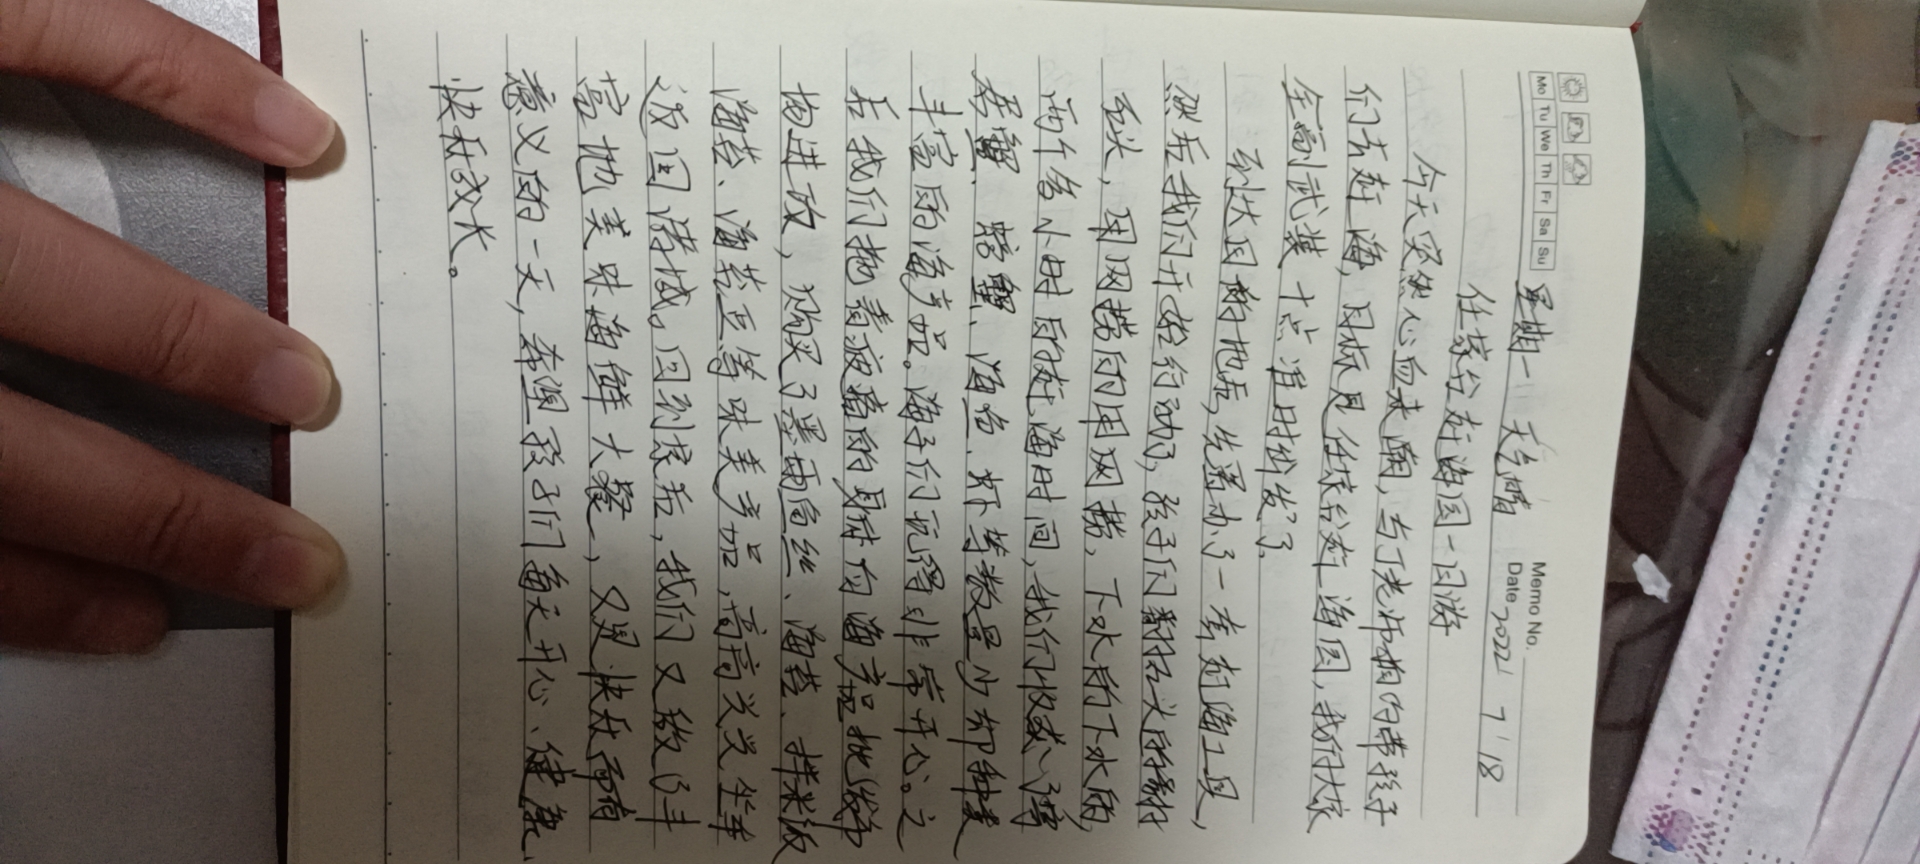 Memo No.
Mo Tu We Th Fr Sa Su
Date 2022 7/18
星期一 天气晴
任家台赶海园一日游
今天突然心血来潮,与丁老师相约带孩子
们去赶海,目标是任家台赶海园,我们大家
全副武装十点准时出发了。
到达目的地后,先置办了一套赶海工具,
然后我们开始行动了,孩子们翻石头的翻
石头,用网捞的用网捞,下水的下水的,
两个多小时的赶海时间,我们收获了寄
居蟹、螃蟹、海鱼、虾等数量少却种类
丰富的海产品。海子们玩得非常开心。之
后我们拖着疲惫的身体向海产品批发市
场进攻,购买了墨鱼丝、海苔、拌米饭
海苔、海苔豆等味美产品,高高兴兴坐车
返回诸城。回到家后,我们又做了丰
富地美味海鲜大餐,又是快乐而有
意义的一天,希望孩子们每天开心、健康、
快乐成长。